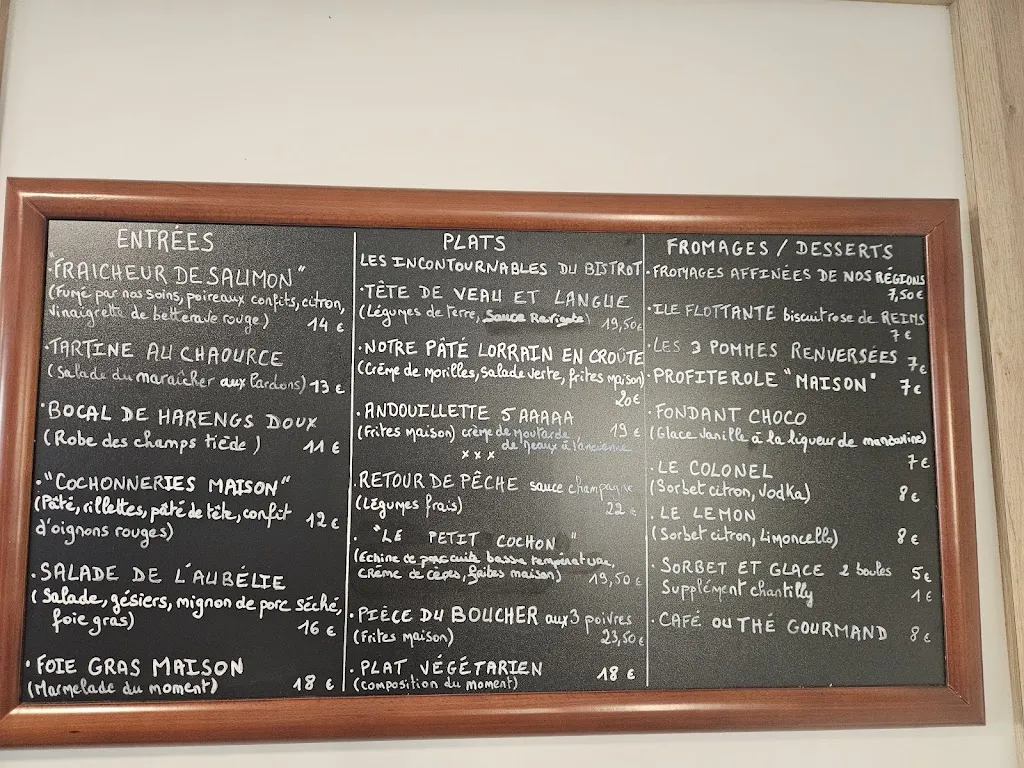 ENTRÉES
"FRAICHEUR DE SAUMON"
(Fumé par nos soins, poireaux confits, citron,
vinaigrette de betterave rouge) 14 €
·TARTINE AU CHAOURCE
(Salade du maraîcher aux lardons) 13 €
·BOCAL DE HARENGS DOUX
(Robe des champs tiède) 11 €
·"COCHONNERIES MAISON"
(Pâté, rillettes, pâté de tête, confit 12 €
d'oignons rouges)
·SALADE DE L'AUBÉLIE
(Salade, gésiers, mignon de porc séché,
foie gras) 16 €
·FOIE GRAS MAISON
(Marmelade du moment) 18 €
PLATS
LES INCONTOURNABLES DU BISTROT
·TÊTE DE VEAU ET LANGUE
(Légumes de terre, Sauce Ravigote) 19,50€
·NOTRE PÂTÉ LORRAIN EN CROÛTE
(Crème de morilles, salade verte, frites maison)
20€
·ANDOUILLETTE 5 AAAAA
(Frites maison) crème de moutarde 19 €
de meaux à l'ancienne
x x x
RETOUR DE PÊCHE sauce champagne
(Légumes frais) 22 €
·"LE PETIT COCHON"
(Echine de porc cuite basse température,
crème de cèpes, frites maison) 19,50 €
·PIÈCE DU BOUCHER aux 3 poivres
(Frites maison) 23,50€
·PLAT VÉGÉTARIEN 18 €
(composition du moment)
FROMAGES / DESSERTS
·FROMAGES AFFINÉES DE NOS RÉGIONS
7,50€
·ILE FLOTTANTE biscuit rose de REIMS
7€
·LES 3 POMMES RENVERSÉES 7€
·PROFITEROLE "MAISON" 7€
·FONDANT CHOCO
(Glace vanille à la liqueur de mandarine)
7€
·LE COLONEL
(Sorbet citron, vodka) 8€
·LE LEMON
(Sorbet citron, Limoncello) 8€
·SORBET ET GLACE 2 boules 5€
Supplément chantilly 1€
·CAFÉ OU THÉ GOURMAND 8€